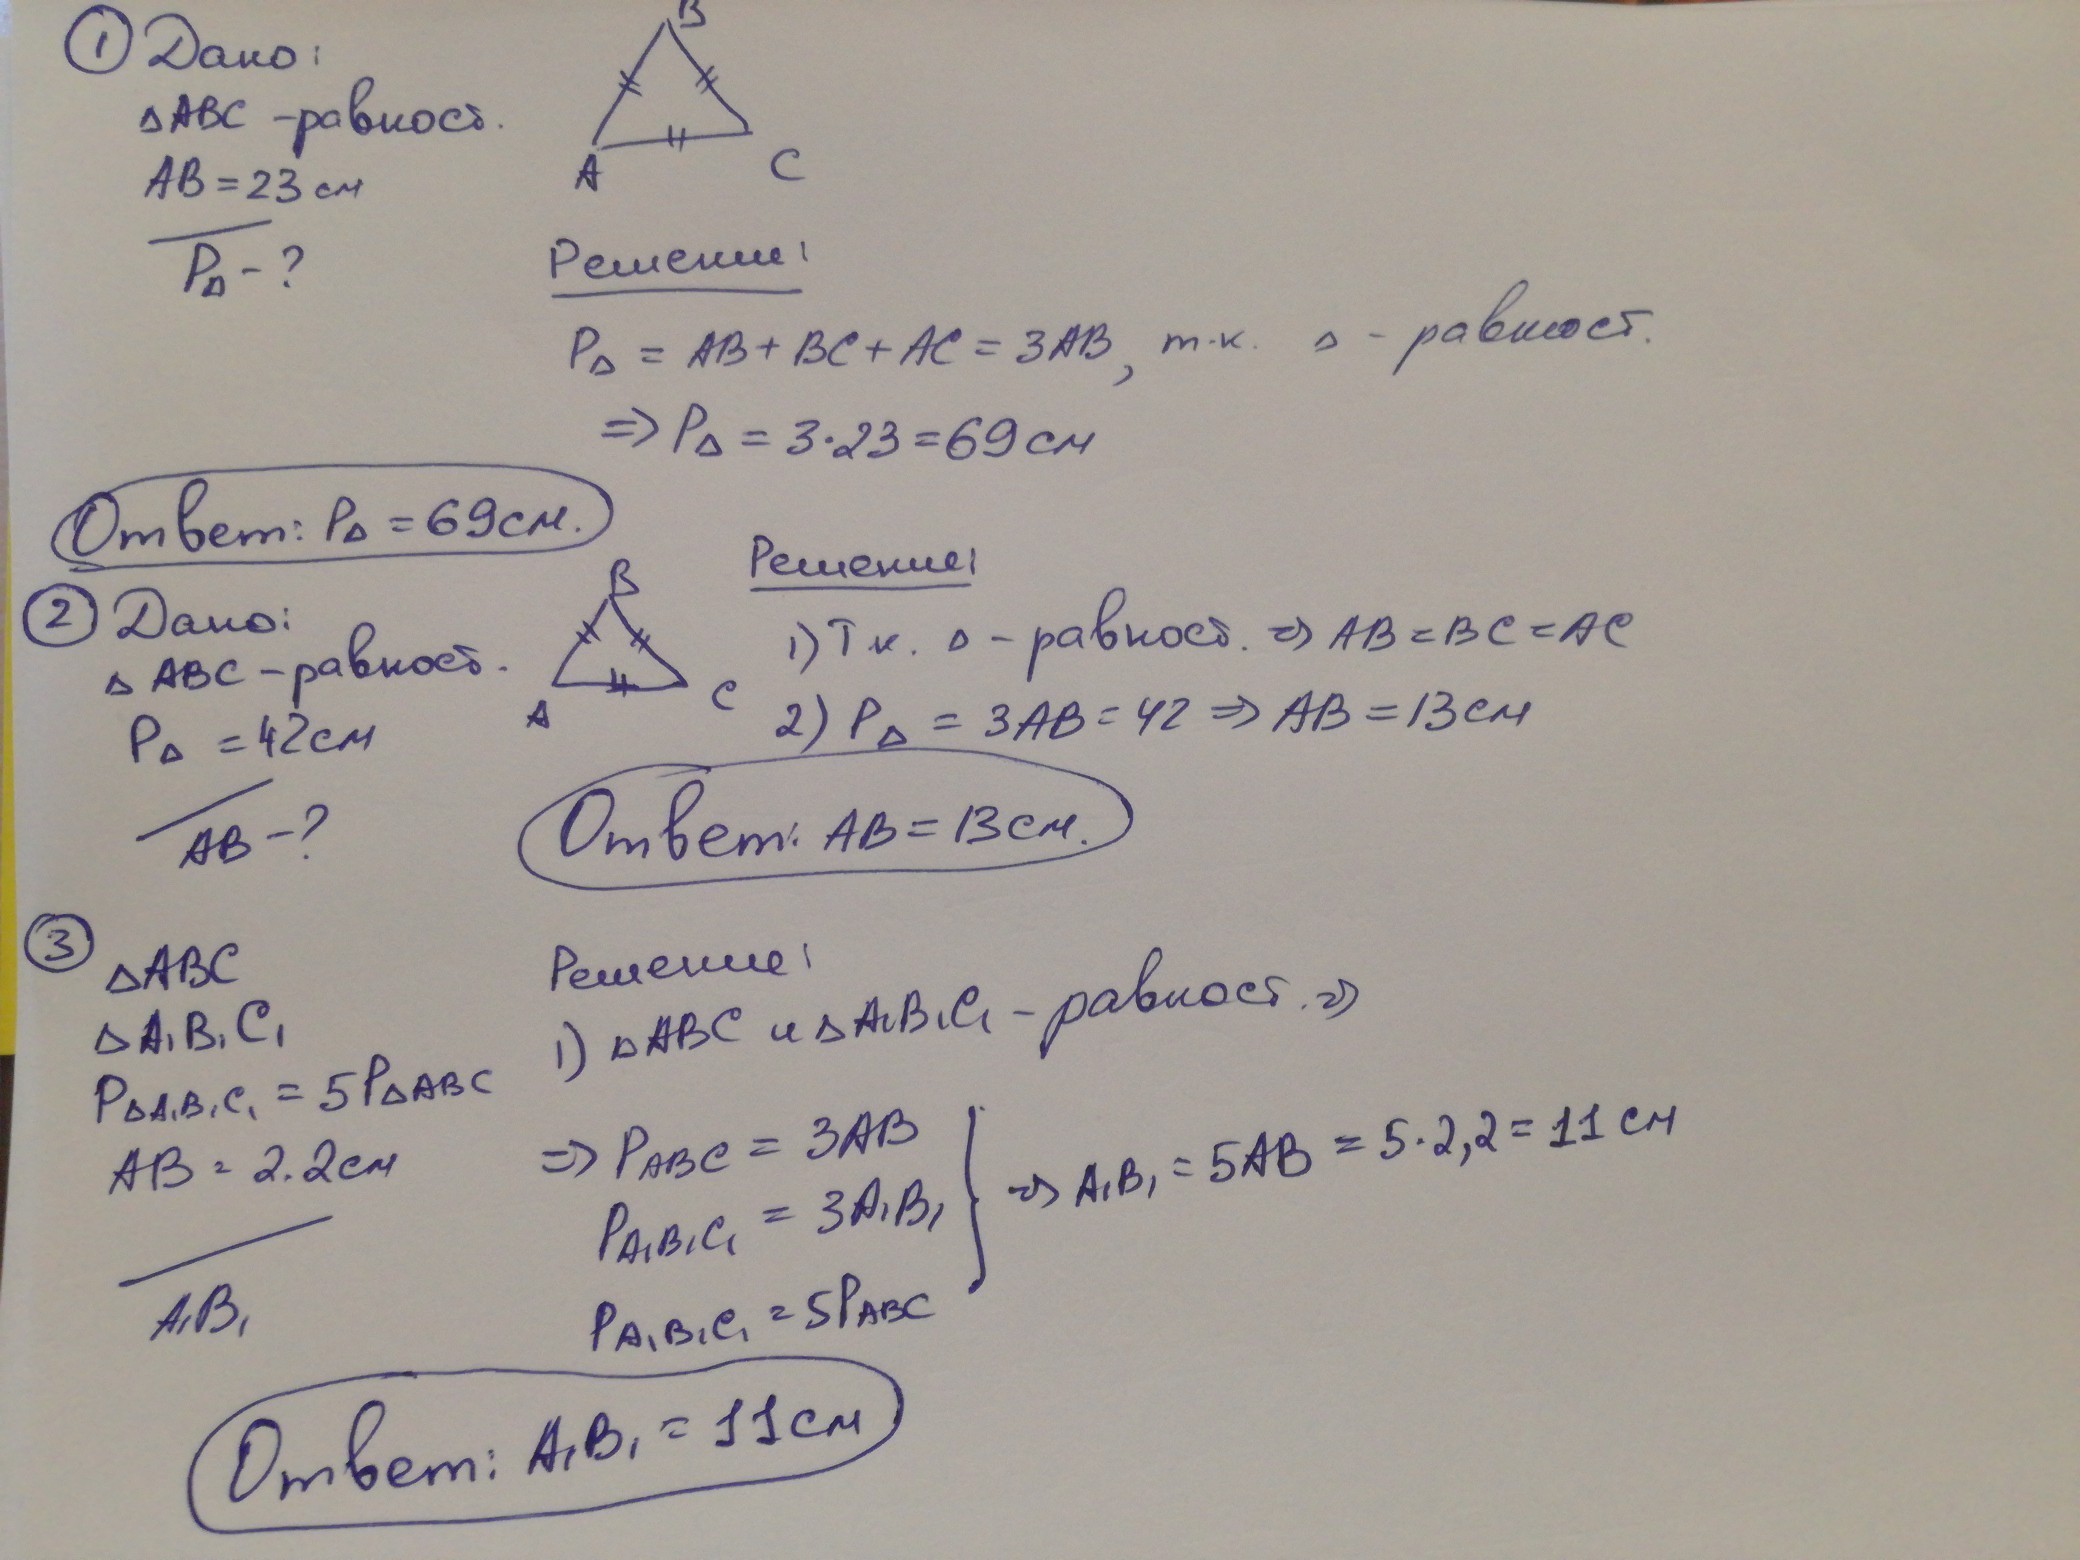 ① Дано:
B
△ABC – равност.
AB = 23 см
A
C
P△ – ?
Решение:
P△ = AB + BC + AC = 3AB, т.к. △ – равност.
⇒ P△ = 3·23 = 69 см
Ответ: P△ = 69 см.
② Дано:
B
△ABC – равност.
A
C
P△ = 42 см
AB – ?
Решение:
1) Т.к. △ – равност. ⇒ AB = BC = AC
2) P△ = 3AB = 42 ⇒ AB = 13 см
Ответ: AB = 13 см.
③
△ABC
△A₁B₁C₁
P△A₁B₁C₁ = 5P△ABC
AB = 2.2 см
A₁B₁
Решение:
1) △ABC и △A₁B₁C₁ – равност. ⇒
⇒ PABC = 3AB
PA₁B₁C₁ = 3A₁B₁
PA₁B₁C₁ = 5PABC
⇒ A₁B₁ = 5AB = 5·2,2 = 11 см
Ответ: A₁B₁ = 11 см